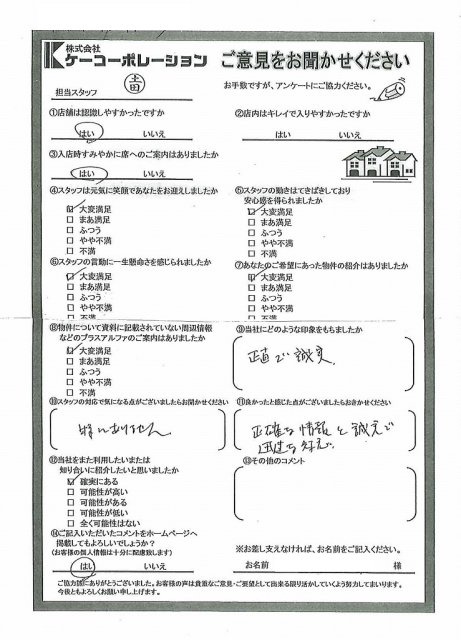 株式会社
ケーコーポレーション ご意見をお聞かせください
お手数ですが、アンケートにご協力ください。
担当スタッフ
①店舗は認識しやすかったですか
はい いいえ
②店内はキレイで入りやすかったですか
はい いいえ
③入店時すみやかに席へのご案内はありましたか
はい いいえ
④スタッフは元気に笑顔であなたをお迎えしましたか
大変満足
まあ満足
ふつう
やや不満
不満
⑤スタッフの動きはてきぱきしており
安心感を得られましたか
大変満足
まあ満足
ふつう
やや不満
不満
⑥スタッフの言動に一生懸命さを感じられましたか
大変満足
まあ満足
ふつう
やや不満
不満
⑦あなたのご希望にあった物件の紹介はありましたか
大変満足
まあ満足
ふつう
やや不満
不満
⑧物件について資料に記載されていない周辺情報
などのプラスアルファのご案内はありましたか
大変満足
まあ満足
ふつう
やや不満
不満
⑨当社にどのような印象をもちましたか
正直で誠実
⑩スタッフの対応で気になる点がございましたらお聞かせください
特にありません
⑪良かったと感じた点がございましたらおきかせください
正確な情報と誠え で
迅速な対応で
⑫当社をまた利用したいまたは
知り合いに紹介したいと思いましたか
確実にある
可能性が高い
可能性がある
可能性が低い
全く可能性はない
⑬その他のコメント
⑭ご記入いただいたコメントをホームページへ
掲載してもよろしいでしょうか?
(お客様の個人情報は十分に配慮致します)
はい いいえ
※お差し支えなければ、お名前をご記入ください。
お名前 様
ご協力誠にありがとうございました。お客様の声は貴重なご意見・ご要望として出来る限り活かしていくよう努力してまいります。
今後ともよろしくお願い申し上げます。